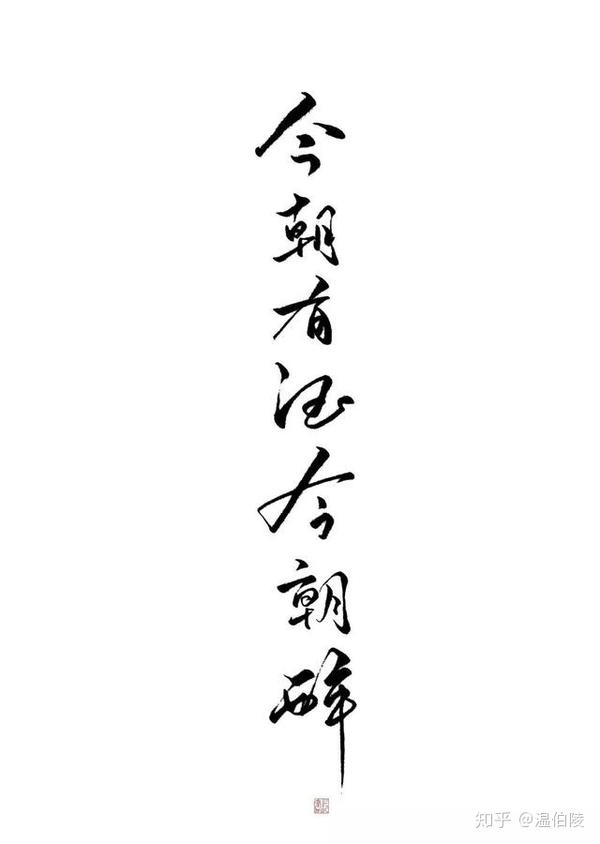 今朝有酒今朝醉
知乎 @温伯陵